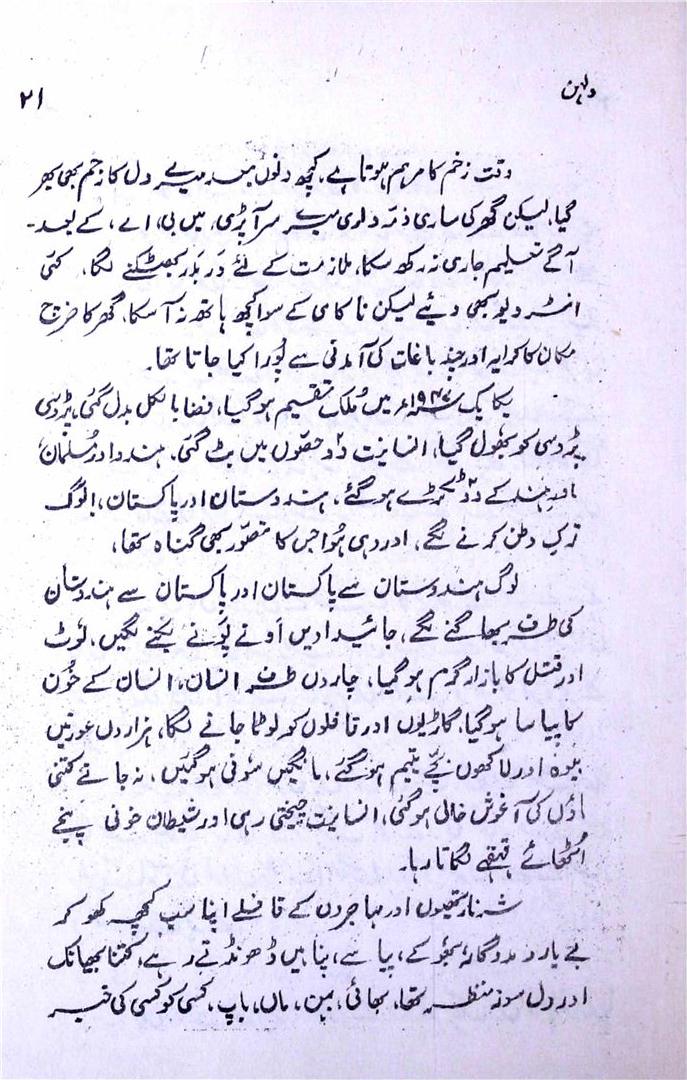 دلہن
۲۱
وقت زخم کا مرہم ہوتا ہے، کچھ دنوں بعد میرے دل کا زخم بھی بھر
گیا، لیکن گھر کی ساری ذمہ داری میرے سر آ پڑی، میں بی، اے، کے بعد۔
آگے تعلیم جاری نہ رکھ سکا، ملازمت کے لئے در بدر بھٹکنے لگا، کئی
انٹرویو بھی دیئے لیکن ناکامی کے سوا کچھ ہاتھ نہ آ سکا، گھر کا خرچ
مکان کا کرایہ اور چند باغات کی آمدنی سے پورا کیا جاتا تھا۔
یکایک ۱۹۴۷ء میں ملک تقسیم ہو گیا، فضا بالکل بدل گئی، پڑوسی
پڑوسی کو بھول گیا، انسانیت دو حصوں میں بٹ گئی، ہندو اور مسلمان،
مادرِ ہند کے دو ٹکڑے ہو گئے، ہندوستان اور پاکستان، لوگ
ترکِ وطن کرنے لگے، اور وہی ہوا جس کا تصور بھی گناہ تھا،
لوگ ہندوستان سے پاکستان اور پاکستان سے ہندوستان
کی طرف بھاگنے لگے، جائیدادیں اونے پونے بکنے لگیں، لوٹ
اور قتل کا بازار گرم ہو گیا، چاروں طرف انسان، انسان کے خون
کا پیاسا ہو گیا، گاڑیوں اور قافلوں کو لوٹا جانے لگا، ہزاروں عورتیں
بیوہ اور لاکھوں بچے یتیم ہو گئے، مانگیں سونی ہو گئیں، نہ جانے کتنی
ماؤں کی آغوش خالی ہو گئی، انسانیت چیختی رہی اور شیطان خونی پنجے
اٹھائے قہقہے لگاتا رہا۔
شرنارتھیوں اور مہاجروں کے قافلے اپنا سب کچھ کھو کر
بے یار و مددگار، بھوکے، پیاسے، پناہیں ڈھونڈتے رہے، کتنا بھیانک
اور دل سوز منظر تھا، بھائی، بہن، ماں، باپ، کسی کو کسی کی خبر